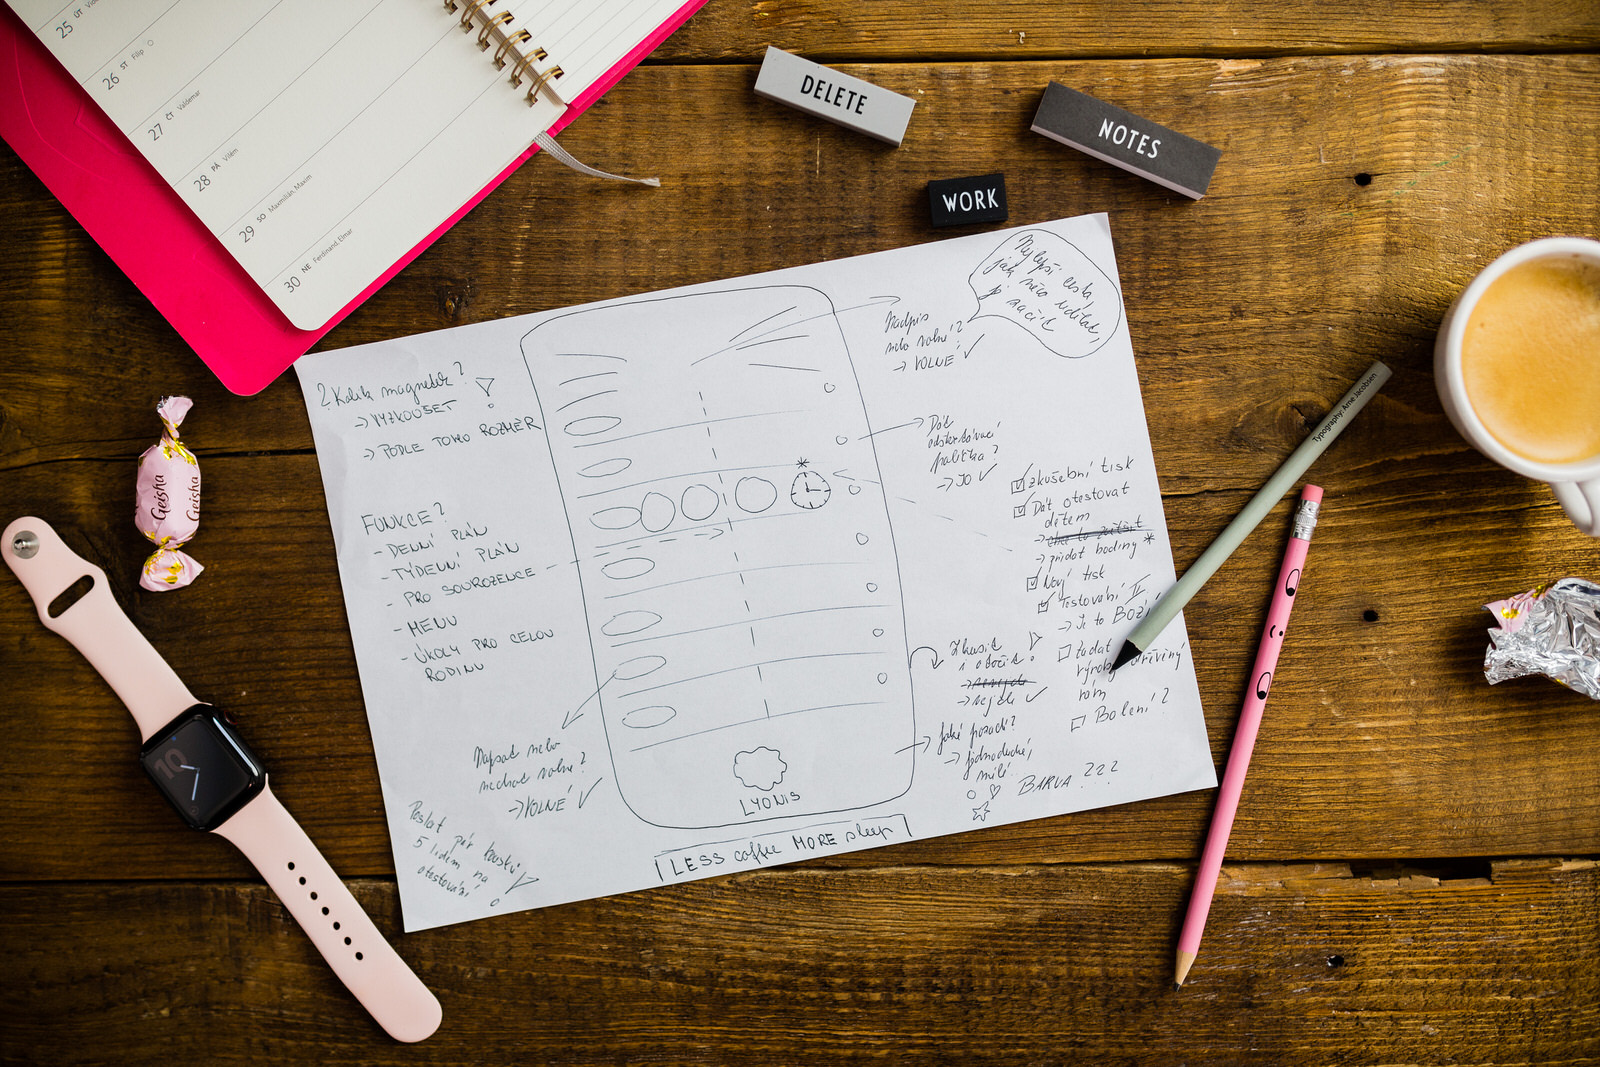 25 ÚT
26 ST Filip
27 ČT Valdemar
28 PÁ Vilém
29 SO Maxmilián, Maxim
30 NE Ferdinand, Elmar
DELETE
NOTES
WORK
Nejlepší cesta
jak něco udělat,
je začít
Nadpis
nebo volné?
→ VOLNÉ ✓
? Kolik magnetek?
→ VYZKOUŠET
→ PODLE TOHO ROZMĚR
Dát
odškrtávací
políčka?
→ JO ✓
FUNKCE?
- DENNÍ PLÁN
- TÝDENNÍ PLÁN
- PRO SOUROZENCE
- MENU
- ÚKOLY PRO CELOU
RODINU
☑ Zkušební tisk
☑ Dát otestovat
dětem
→ přidat hodiny *
☑ Nový tisk
☑ Testování II
→ Je to BOŽÍ
☐ Zadat
výrobu dřevěný
rám
☐ Balení?
Zkusit
i otočit!
→ nejde ✓
Napsat nebo
nechat volné?
→ VOLNÉ ✓
Jaké pozadí?
→ jednoduché,
milé
BARVA ???
Poslat pár kousků
5 lidem na
otestování!
LYONIS
LESS coffee MORE sleep
Geisha
Geisha
10
Typography: Arne Jacobsen